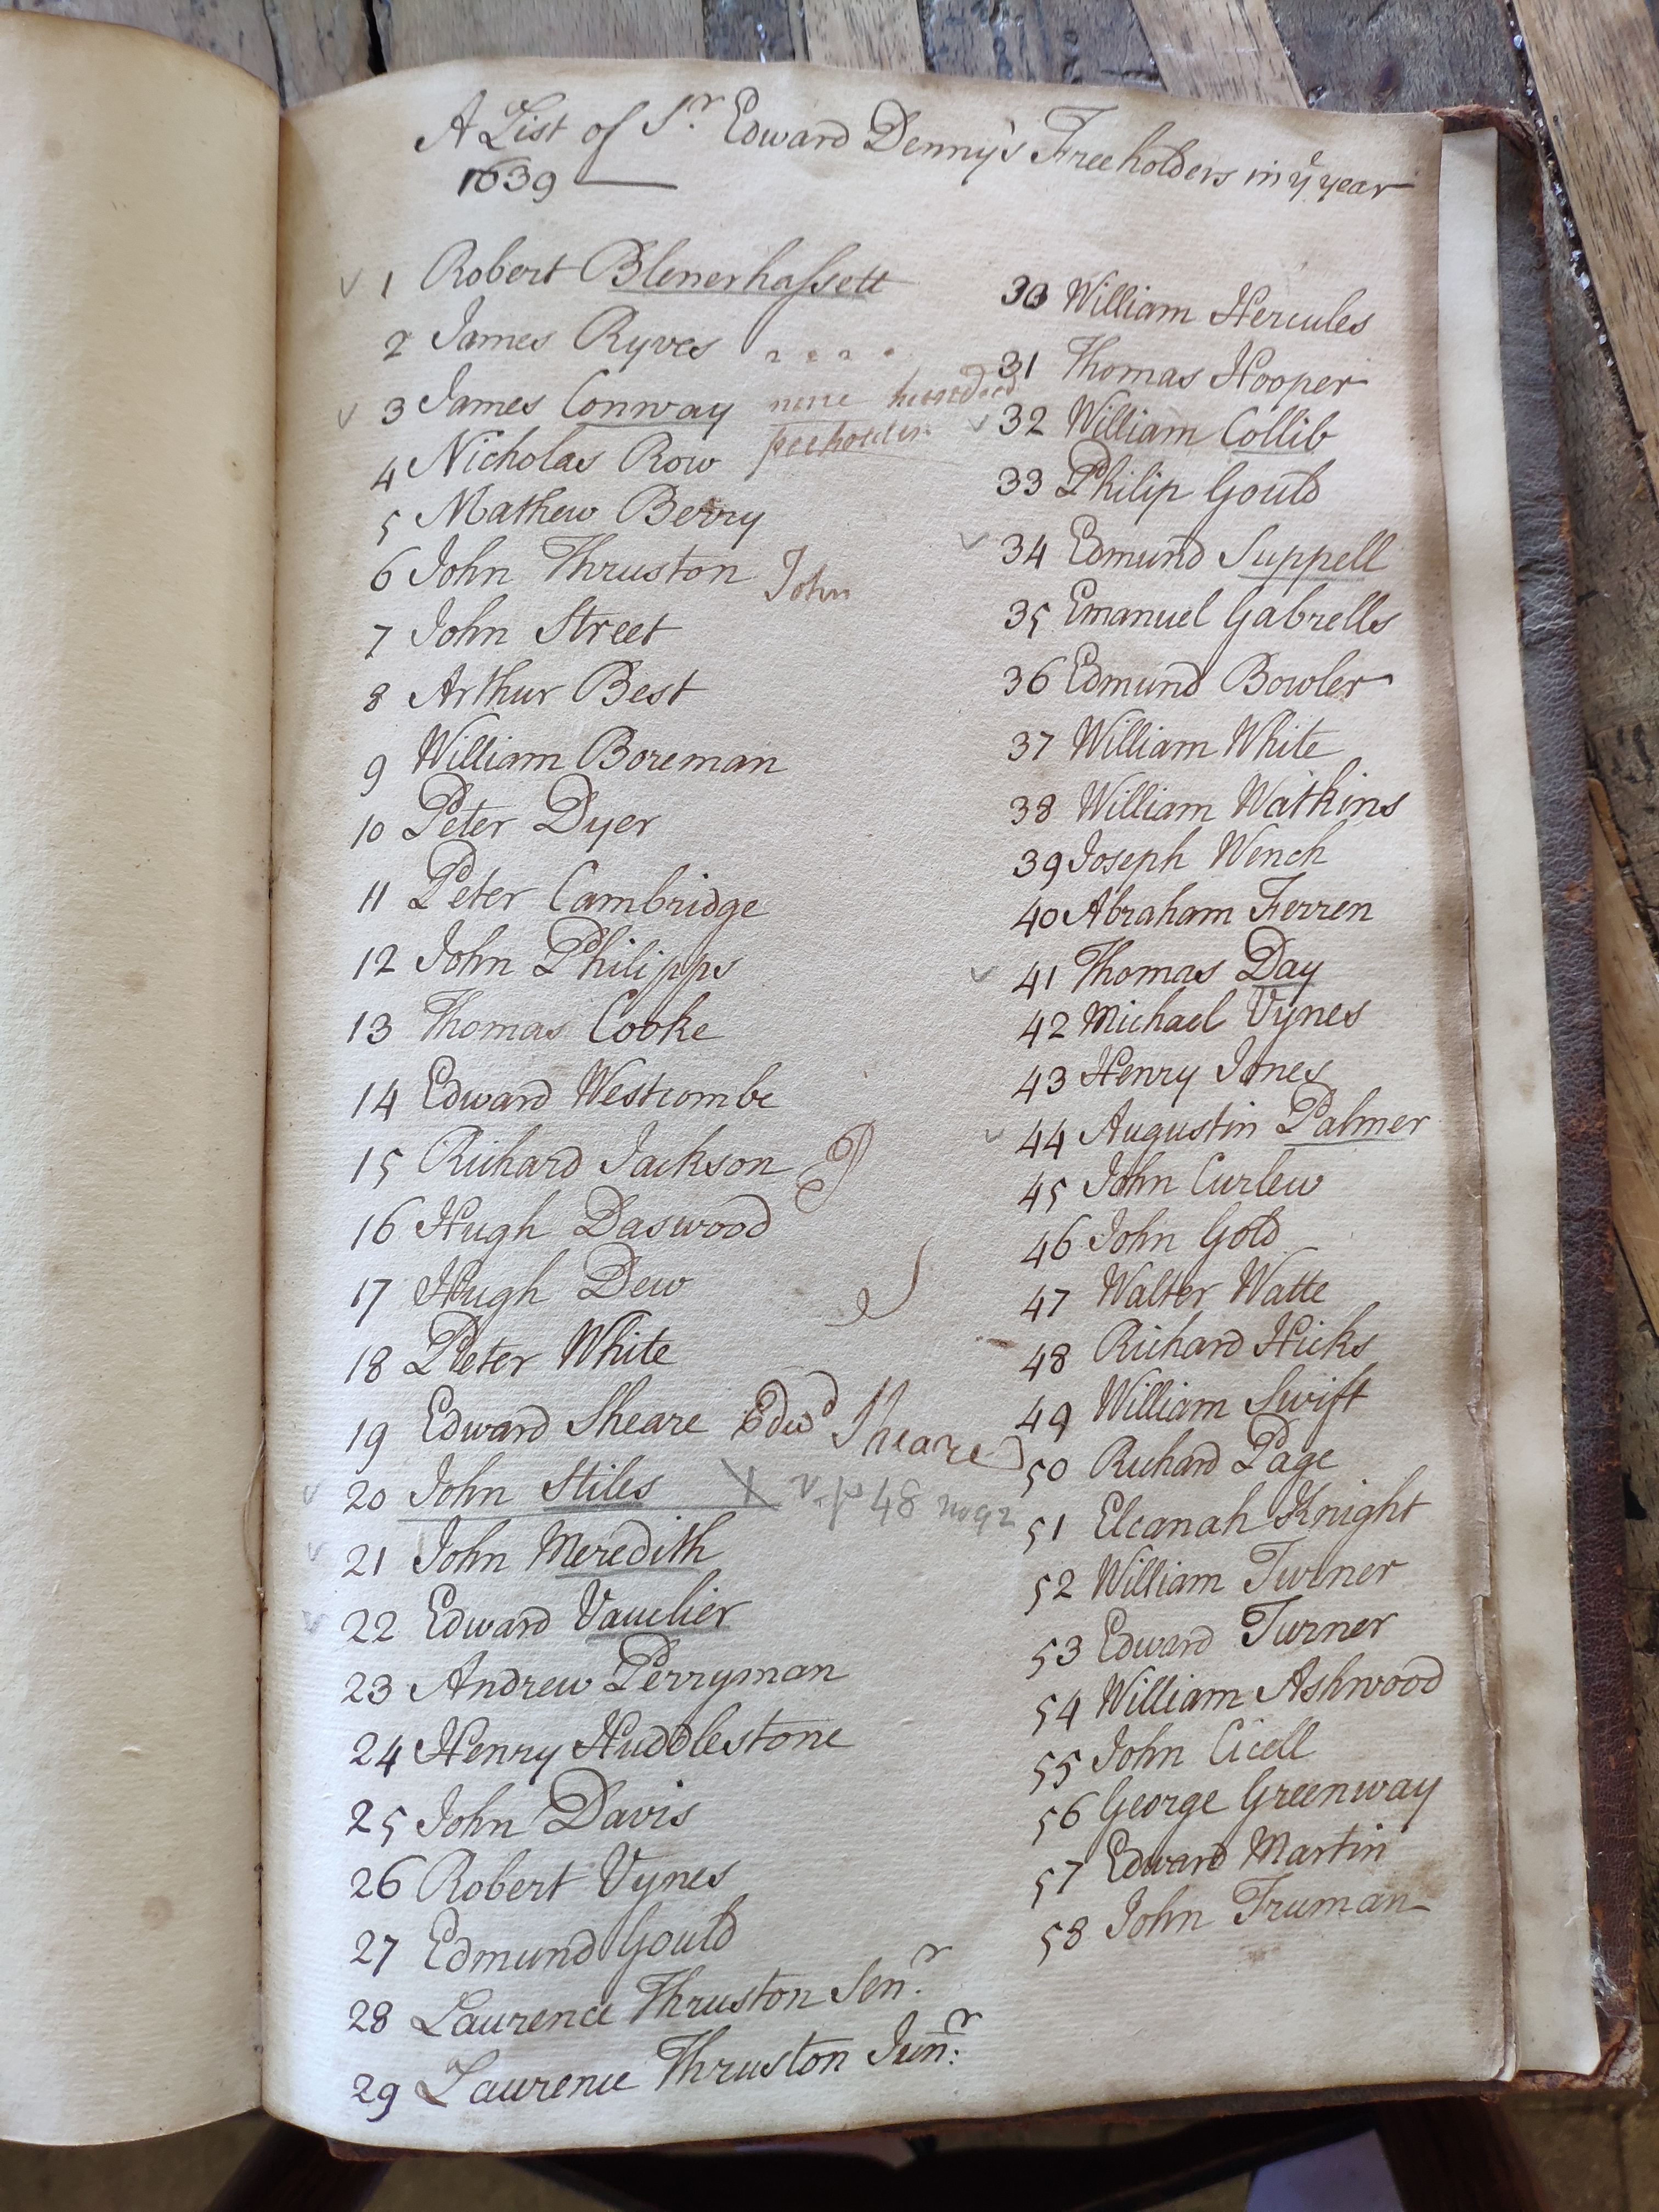 A List of Sr. Edward Denny's Freeholders in ye year
1639
1 Robert Blenerhaſsett
2 James Ryves
3 James Conway none hundred
4 Nicholas Row freeholder
5 Mathew Berry
6 John Thruston John
7 John Street
8 Arthur Best
9 William Boreman
10 Peter Dyer
11 Peter Cambridge
12 John Philipps
13 Thomas Cooke
14 Edward Westcombe
15 Richard Jackson
16 Hugh Daswood
17 Hugh Dew
18 Peter White
19 Edward Sheare Edwd Sheare
20 John Stiles X 48
21 John Meredith
22 Edward Vauclier
23 Andrew Perryman
24 Henry Huddlestone
25 John Davis
26 Robert Vynes
27 Edmund Gould
28 Laurence Thruston Senr.
29 Laurence Thruston Junr.
30 William Hercules
31 Thomas Hooper
32 William Collib
33 Philip Gould
34 Edmund Suppell
35 Emanuel Gabrells
36 Edmund Bowler
37 William White
38 William Watkins
39 Joseph Wench
40 Abraham Ferren
41 Thomas Day
42 Michael Vynes
43 Henry Jones
44 Augustin Palmer
45 John Curlew
46 John Gold
47 Walter Watte
48 Richard Hicks
49 William Swift
50 Richard Page
51 Elcanah Knight
52 William Turner
53 Edward Turner
54 William Ashwood
55 John Cicell
56 George Greenway
57 Edward Martin
58 John Truman